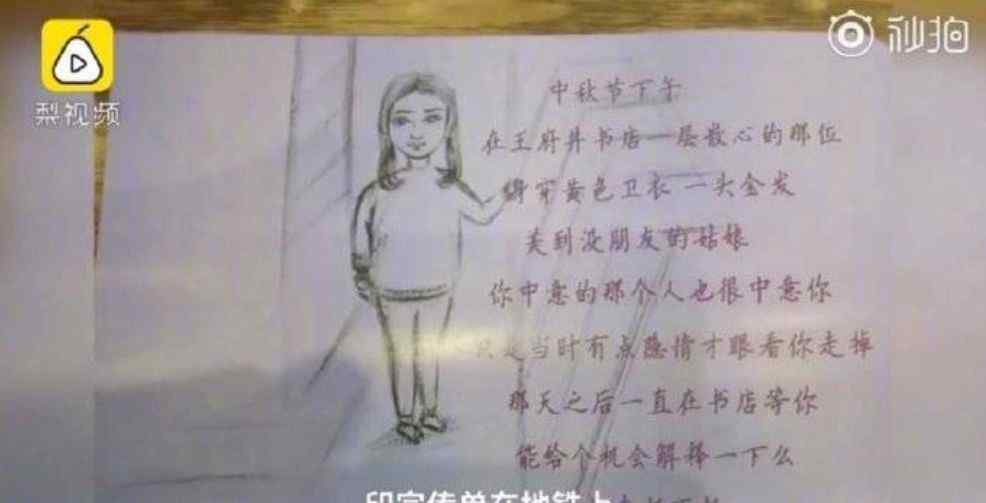 梨视频
秒拍
中秋节下午
在王府井书店一层散心的那位
身穿黄色卫衣 一头金发
美到没朋友的姑娘
你中意的那个人也很中意你
只是当时有点隐情才眼看你走掉
那天之后一直在书店等你
能给个机会解释一下么
印宣传单在地铁上